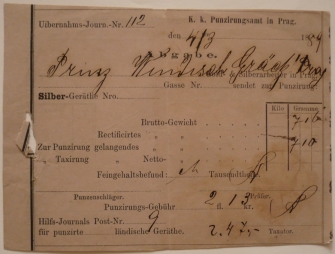 Uibernahms-Journ.-Nr. 112
K. k. Punzirungsamt in Prag.
den 4/3 18
Aufgabe.
Prinz Windisch Grätz Prag
Silberarbeiter in Prag
Gasse Nr. sendet zur Punzirung:
Silber-Geräthe Nro.
Kilo Gramm
Brutto-Gewicht 710
Rectificirtes "
Zur Punzirung gelangendes " 710
" Taxirung " Netto-
Feingehaltsbefund: Tausendtheile.
Punzenschläger. Prüfer.
Punzirungs-Gebühr 2 fl. 13 kr.
Hilfs-Journals Post-Nr. 9
für punzirte ländische Geräthe. 2.47 Taxator.